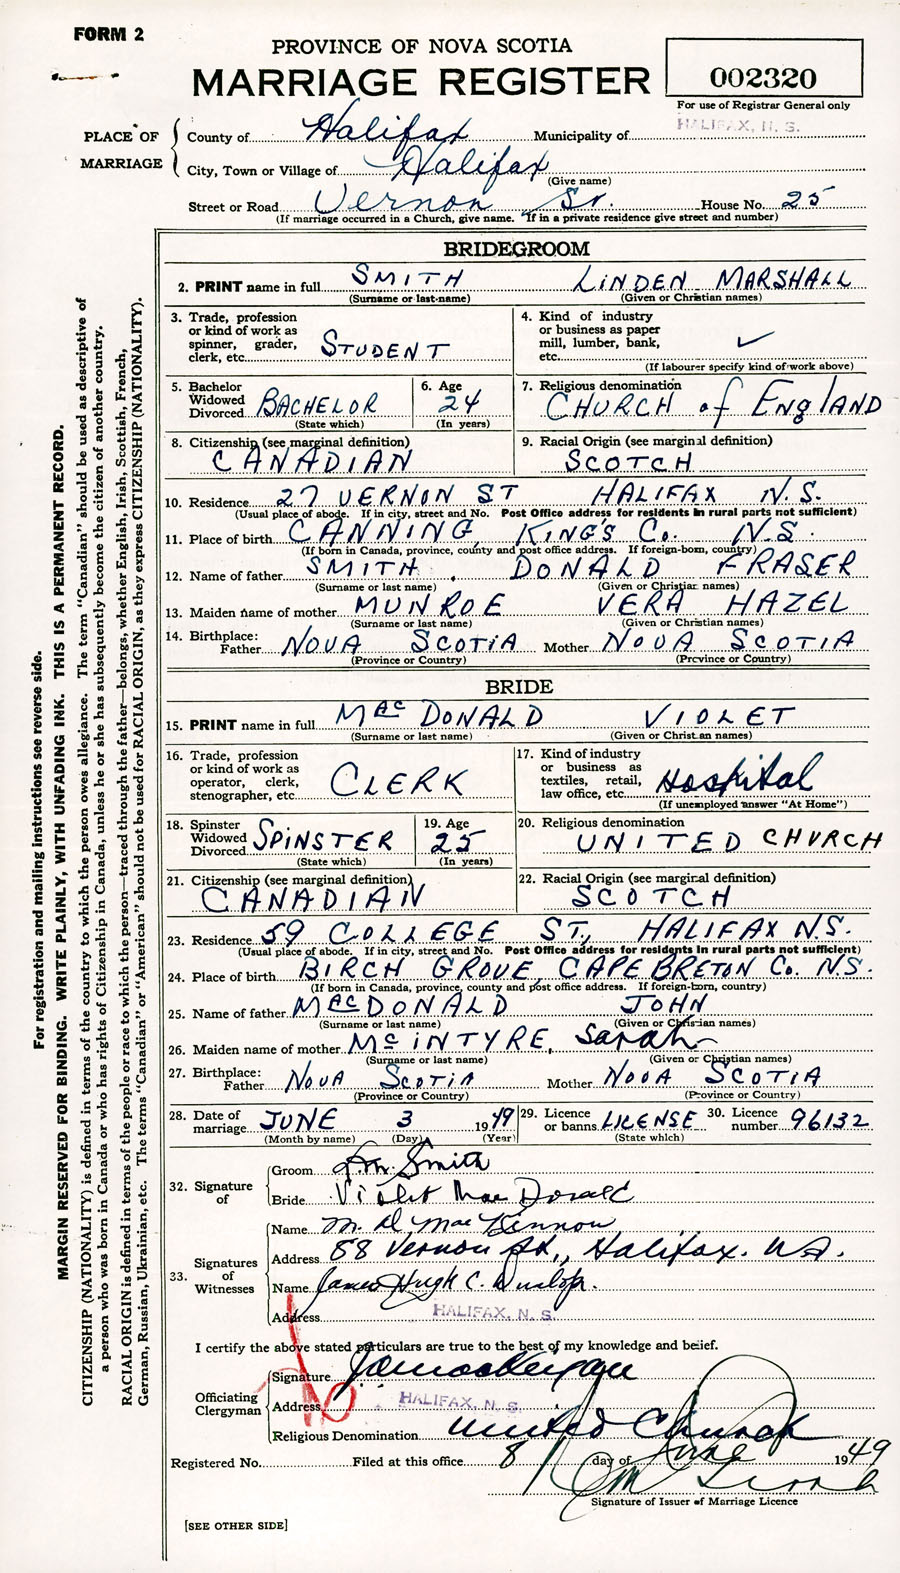 FORM 2
PROVINCE OF NOVA SCOTIA
MARRIAGE REGISTER
002320
For use of Registrar General only
PLACE OF MARRIAGE
County of Halifax Municipality of HALIFAX, N. S.
City, Town or Village of Halifax
(Give name)
Street or Road Vernon St. House No. 25
(If marriage occurred in a Church, give name. If in a private residence give street and number)
BRIDEGROOM
2. PRINT name in full SMITH LINDEN MARSHALL
(Surname or last name) (Given or Christian names)
3. Trade, profession or kind of work as spinner, grader, clerk, etc. STUDENT
4. Kind of industry or business as paper mill, lumber, bank, etc. ✓
(If labourer specify kind of work above)
5. Bachelor Widowed Divorced BACHELOR
(State which)
6. Age 24
(In years)
7. Religious denomination
CHURCH of ENgLAND
8. Citizenship (see marginal definition)
CANADIAN
9. Racial Origin (see marginal definition)
SCOTCH
10. Residence 27 VERNON ST HALIFAX N.S.
(Usual place of abode. If in city, street and No. Post Office address for residents in rural parts not sufficient)
11. Place of birth CANNING, KING'S Co. N.S.
(If born in Canada, province, county and post office address. If foreign-born, country)
12. Name of father SMITH, DONALD FRASER
(Surname or last name) (Given or Christian names)
13. Maiden name of mother MUNROE VERA HAZEL
(Surname or last name) (Given or Christian names)
14. Birthplace:
Father NOVA SCOTIA Mother NOVA SCOTIA
(Province or Country) (Province or Country)
BRIDE
15. PRINT name in full MacDONALD VIOLET
(Surname or last name) (Given or Christian names)
16. Trade, profession or kind of work as operator, clerk, stenographer, etc. CLERK
17. Kind of industry or business as textiles, retail, law office, etc. Hospital
(If unemployed answer "At Home")
18. Spinster Widowed Divorced SPINSTER
(State which)
19. Age 25
(In years)
20. Religious denomination
UNITED CHURCH
21. Citizenship (see marginal definition)
CANADIAN
22. Racial Origin (see marginal definition)
SCOTCH
23. Residence 59 COLLEGE ST., HALIFAX N.S.
(Usual place of abode. If in city, street and No. Post Office address for residents in rural parts not sufficient)
24. Place of birth BIRCH GROVE, CAPE BRETON Co. N.S.
(If born in Canada, province, county and post office address. If foreign-born, country)
25. Name of father MacDONALD JOHN
(Surname or last name) (Given or Christian names)
26. Maiden name of mother McINTYRE, Sarah
(Surname or last name) (Given or Christian names)
27. Birthplace:
Father NOVA SCOTIA Mother NOVA SCOTIA
(Province or Country) (Province or Country)
28. Date of marriage JUNE 3 1949
(Month by name) (Day) (Year)
29. Licence or banns LICENSE
(State which)
30. Licence number 96132
32. Signature of
Groom Smith
Bride Violet MacDonald
33. Signatures of Witnesses
Name M. D. MacKinnon
Address 88 Vernon St., Halifax. N.S.
Name James Hugh C. Dunlop.
Address HALIFAX, N. S.
I certify the above stated particulars are true to the best of my knowledge and belief.
Officiating Clergyman
Signature
Address HALIFAX, N. S.
Religious Denomination United Church
Registered No. Filed at this office 8 day of June 1949
Signature of Issuer of Marriage Licence
[SEE OTHER SIDE]
For registration and mailing instructions see reverse side.
MARGIN RESERVED FOR BINDING. WRITE PLAINLY, WITH UNFADING INK. THIS IS A PERMANENT RECORD.
CITIZENSHIP (NATIONALITY) is defined in terms of the country to which the person owes allegiance. The term "Canadian" should be used as descriptive of
a person who was born in Canada or who has rights of Citizenship in Canada, unless he or she has subsequently become the citizen of another country.
RACIAL ORIGIN is defined in terms of the people or race to which the person—traced through the father—belongs, whether English, Irish, Scottish, French,
German, Russian, Ukrainian, etc. The terms "Canadian" or "American" should not be used for RACIAL ORIGIN, as they express CITIZENSHIP (NATIONALITY).